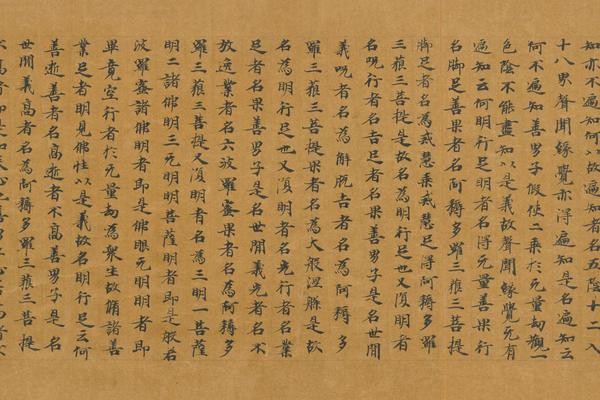 知亦不遍知如何以故遍知者名五陰十二入
十八界聲聞緣覺亦得遍知是名遍知云
何不遍知善男子假使二乘於无量劫觀一
色陰不能盡知以是義故聲聞緣覺无有
遍知云何明行足明者名得无量善果行
名脚足善果者名阿耨多羅三藐三菩提
脚足者名為戒慧乘戒慧足得阿耨多羅
三藐三菩提是故名為明行足也又復明者
名呪行者名吉足者名果善男子是名世間
義呪者名為解脫吉者名為阿耨多
羅三藐三菩提果者名為大般涅槃是故
名為明行足也又復明者名光行者名業
足者名果善男子是名世間義光者名不
放逸業者名六波羅蜜果者名為阿耨多
羅三藐三菩提又復明者名為三明一菩薩
明二諸佛明三无明明菩薩明者即是般若
波羅蜜諸佛明者即是佛眼无明明者即
畢竟空行者於无量劫為衆生故脩諸善
業足者明見佛性以是義故名明行足云何
善逝善者名高逝者不高善男子是名
世間義高者名為阿耨多羅三藐三菩提